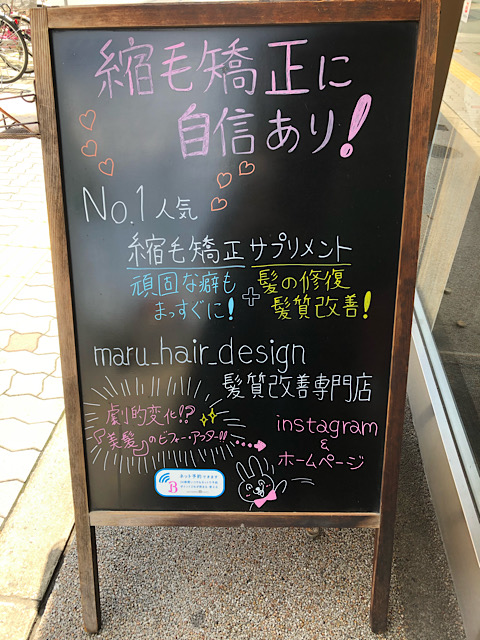 縮毛矯正に
自信あり!
No.1人気
縮毛矯正サプリメント
頑固な癖も
まっすぐに!
+
髪の修復
髪質改善!
maru_hair_design
髪質改善専門店
劇的変化!?
『美髪』のビフォー・アフター!!
instagram
&
ホームページ
ネット予約できます
B